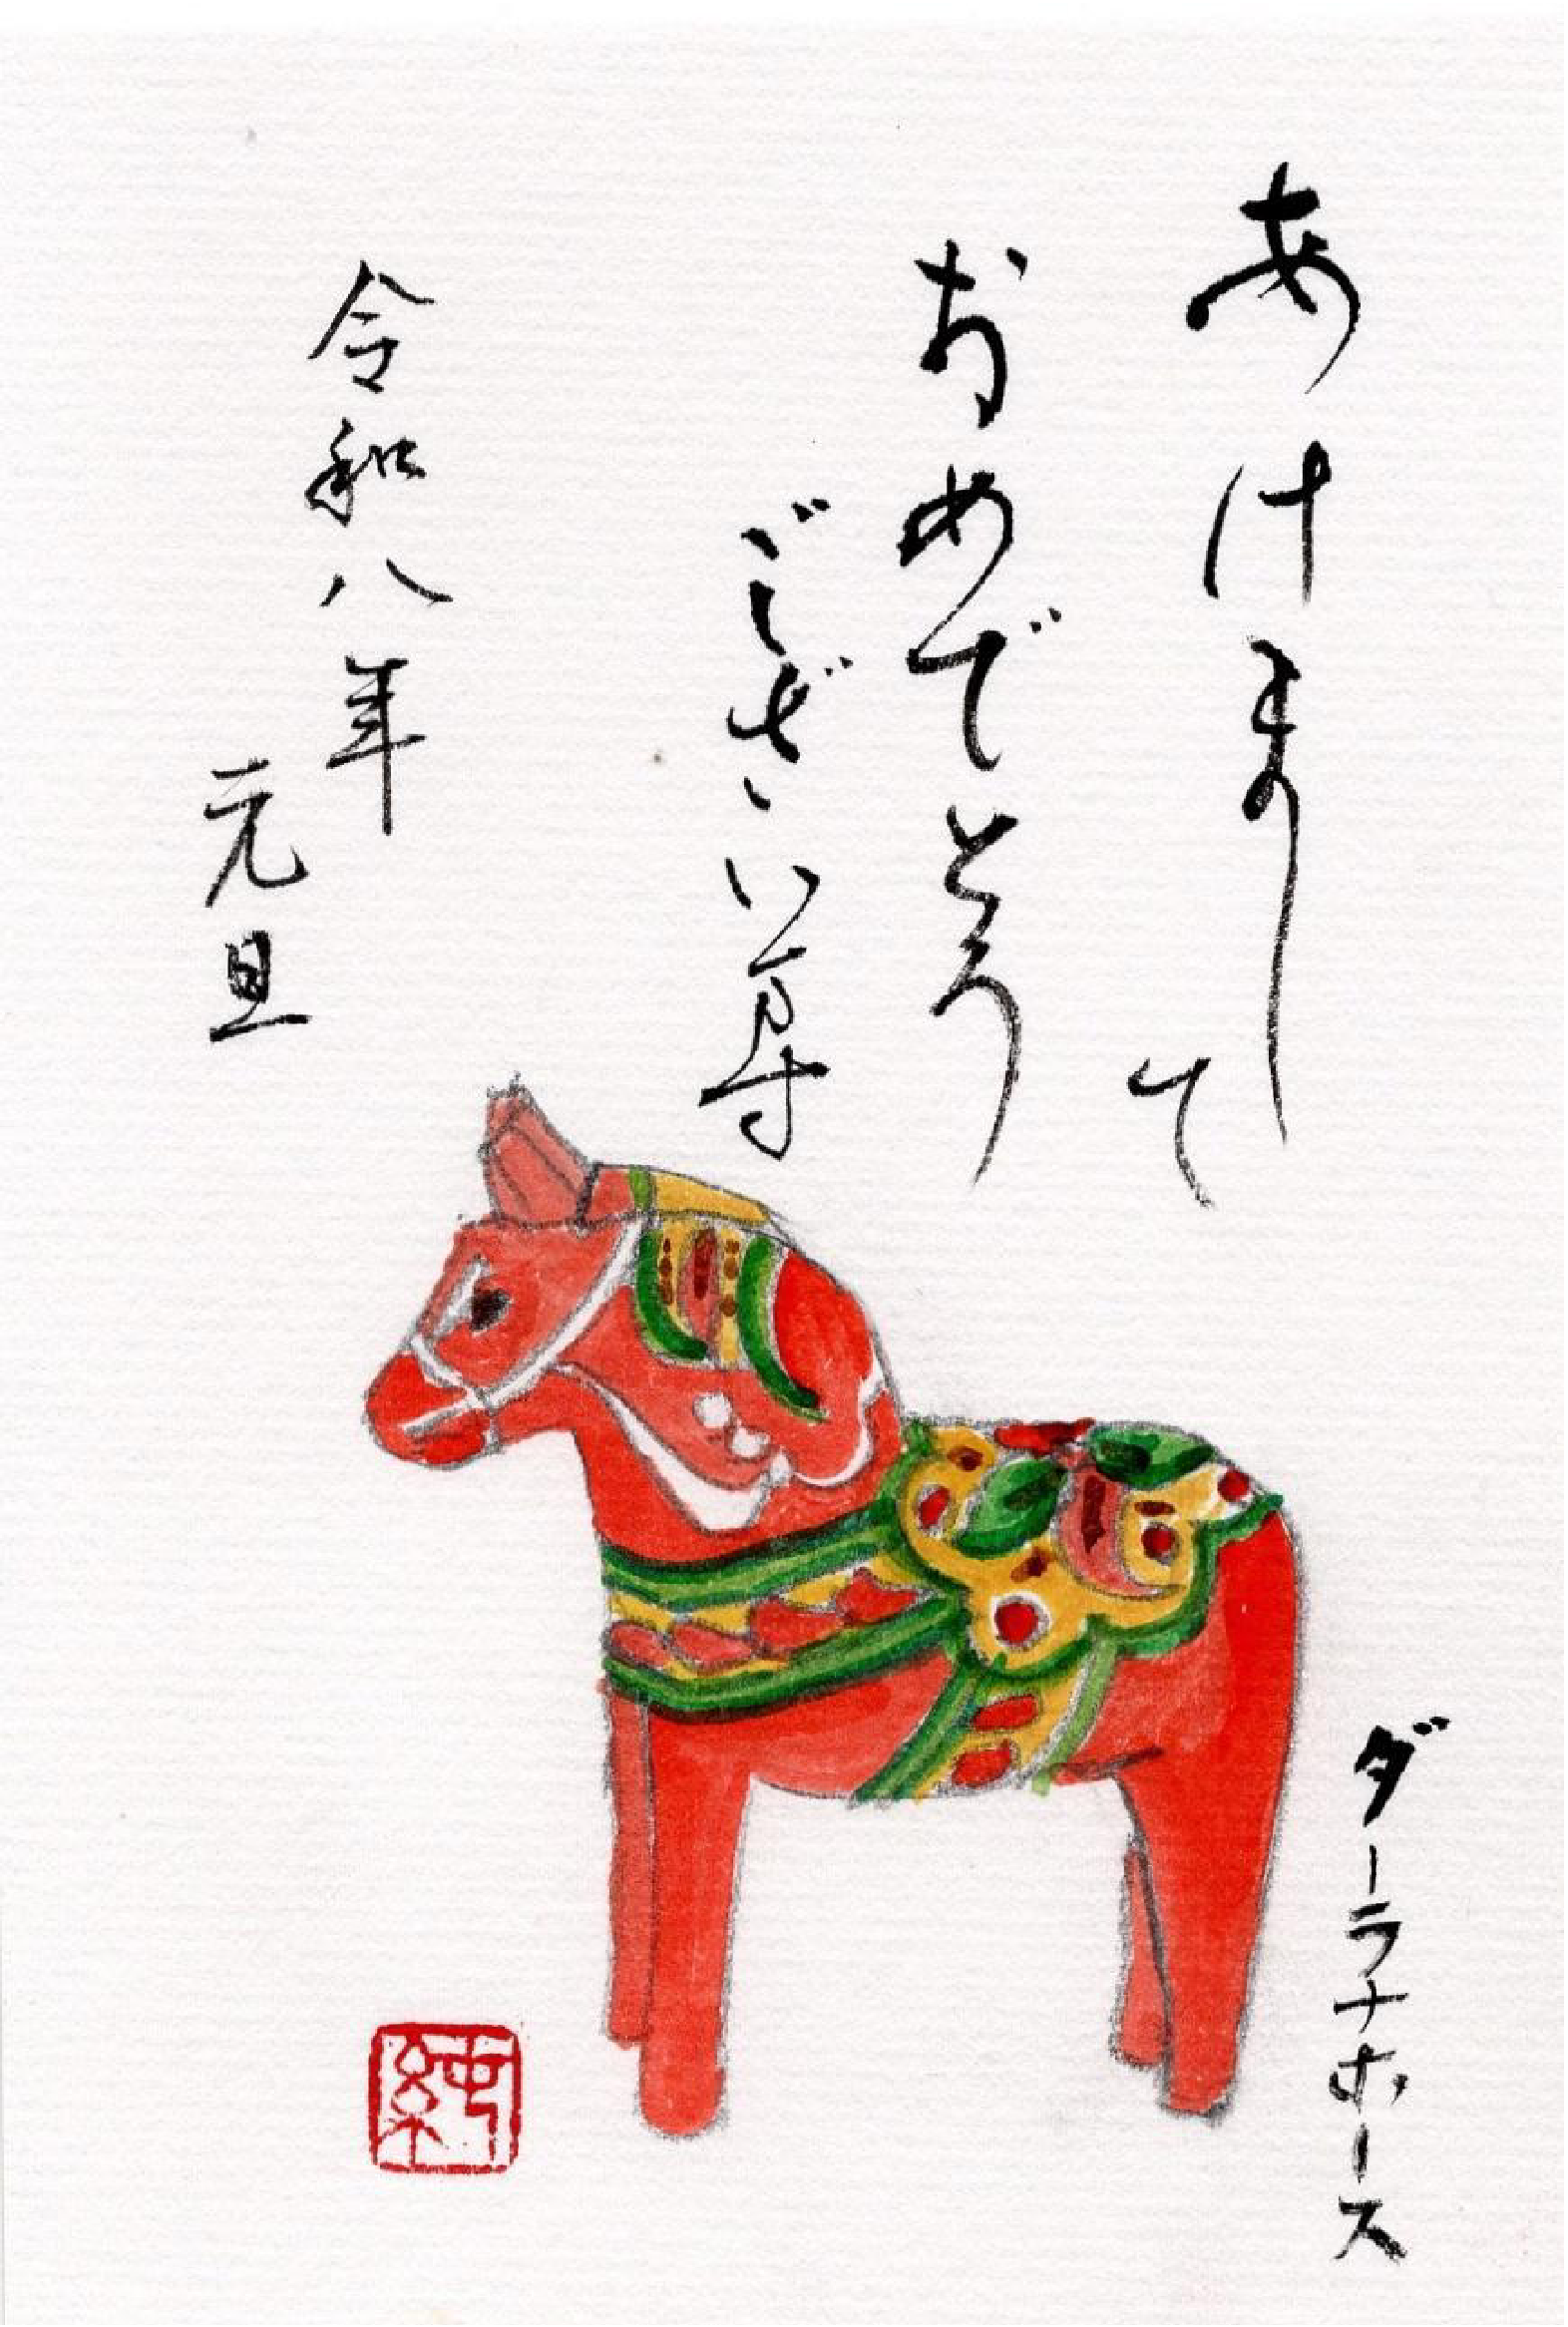 あけまして
おめでとう
ございます
令和八年
元旦
ダーラナホース
純